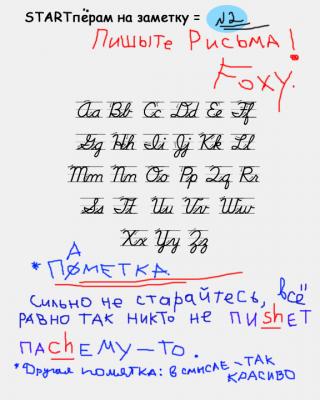 STARTпёрам на заметку = №2
Пишыте Рисьма!
Foxy.
Aa Bb Cc Dd Ee Ff
Gg Hh Ii Jj Kk Ll
Mm Nn Oo Pp Qq Rr
Ss Tt Uu Vv Ww
Xx Yy Zz
А
*ПОМЕТКА.
сильно не старайтесь, всё
РАВНО ТАК НИКТО НЕ ПИshЕТ
ПАchЕМУ-ТО.
*Другая помятка: в смысле - ТАК
КРАСИВО